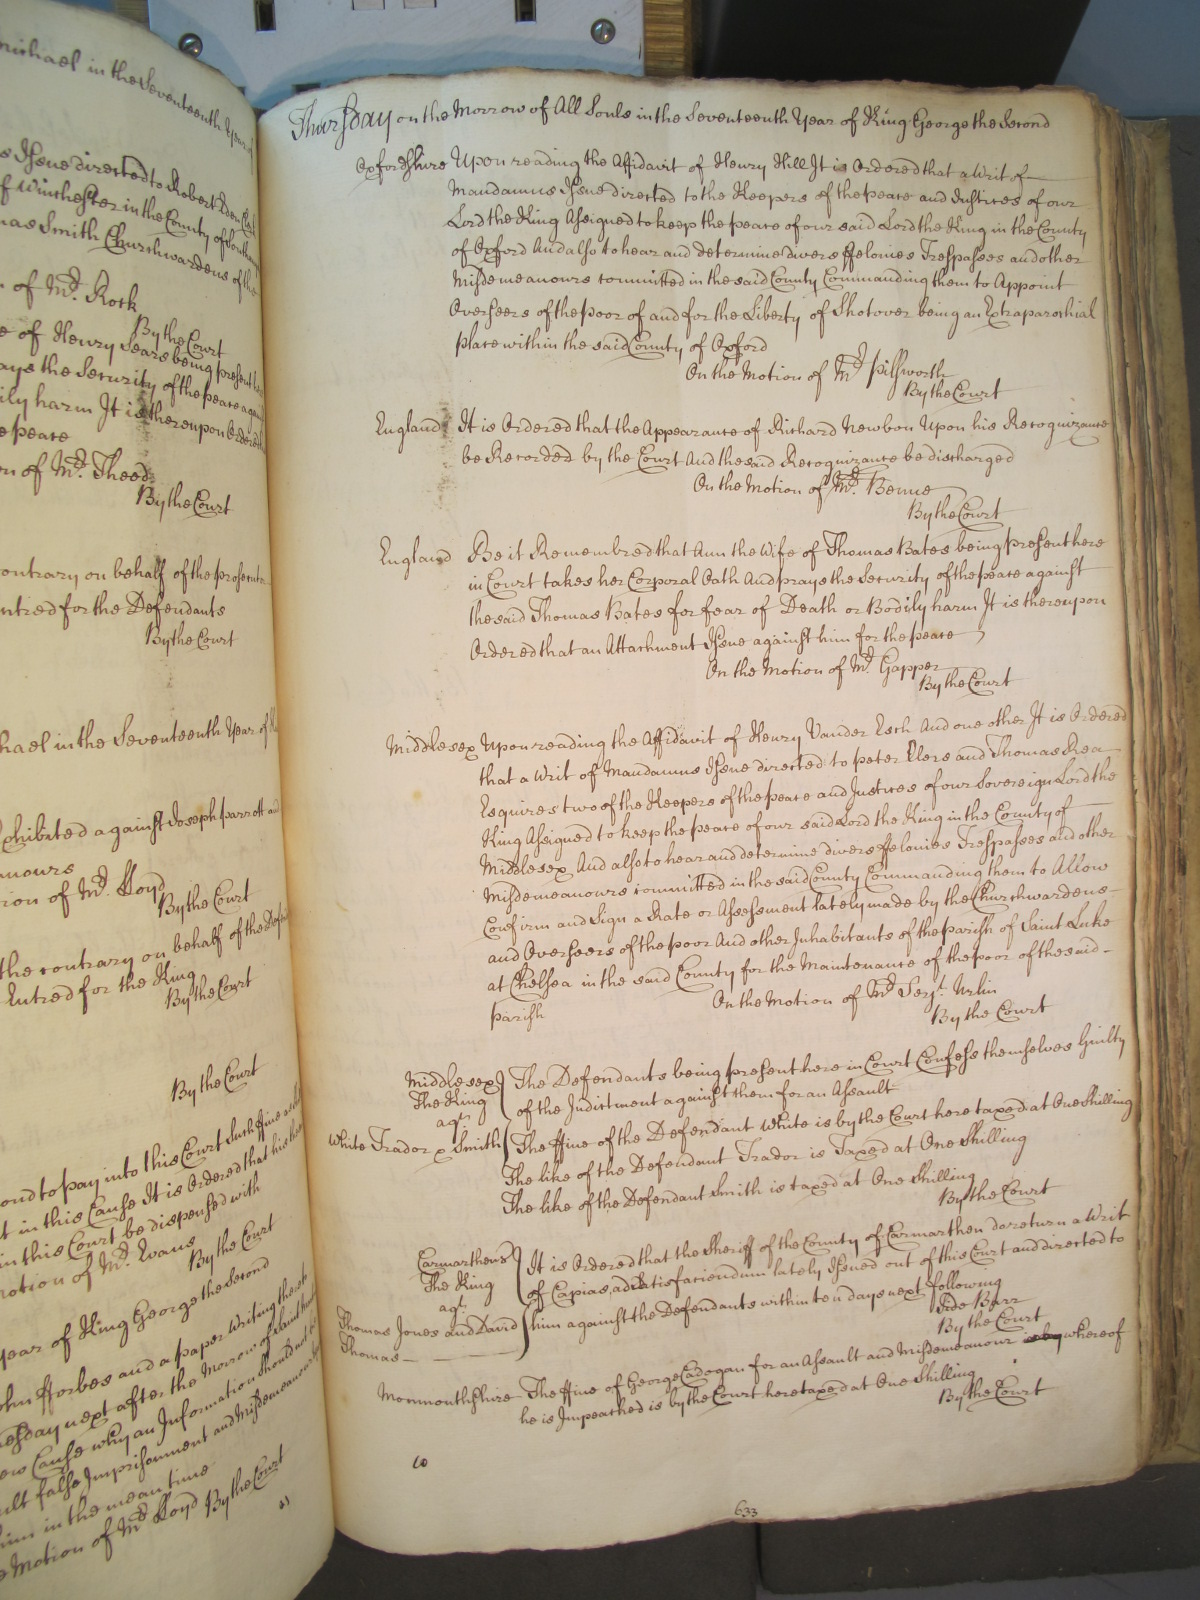 michael in the Seventeenth Year of
s Issue directed to Robert Eden Clerk
of Winchester in the County of
mas Smith Churchwardens of the
of Mr. Rock
By the Court
e of Henry Sears being present
ays the Security of the peace
ily harm It is thereupon Ordered
e peace
on of Mr. Theed
By the Court
contrary on behalf of the
ntred for the Defendants
By the Court
hael in the Seventeenth Year of
Exhibited against Joseph Parrott and
anours
tion of Mr. Lloyd
By the Court
the contrary on behalf of the
Entred for the King
By the Court
By the Court
ond to pay into this Court such ffine
t in this Cause It is Ordered that his
in this Court be dispensed with
otion of Mr. Evans
By the Court
year of King George the Second
ohn fforbes and a paper writing
esday next after the Morrow of
ew Cause why an Information should not
ult false Imprisonment and Misdemeanour
him in the mean time
e Motion of Mr. Lloyd By the Court
Thursday on the Morrow of All Souls in the Seventeenth Year of King George the Second
Oxfordshire Upon reading the Affidavit of Henry Hill It is Ordered that a Writ of
Mandamus Issue directed to the Keepers of the peace and Justices of our
Lord the King Assigned to keep the peace of our said Lord the King in the County
of Oxford And also to hear and determine divers ffelonies Trespasses and other
Misdemeanours committed in the said County Commanding them to Appoint
Overseers of the poor of and for the Liberty of Shotover being an Extraparochial
place within the said County of Oxford
On the Motion of Mr. Pillsworth
By the Court
England It is Ordered that the Appearance of Richard Newbon Upon his Recognizance
be Recorded by the Court And the said Recognizance be discharged
On the Motion of Mr. Benne
By the Court
England Be it Remembred that Ann the Wife of Thomas Bates being present here
in Court takes her Corporal Oath And prays the Security of the peace against
the said Thomas Bates for fear of Death or Bodily harm It is thereupon
Ordered that an Attachment Issue against him for the peace
On the Motion of Mr. Gapper
By the Court
Middlesex Upon reading the Affidavit of Henry Vander Esch And one other It is Ordered
that a Writ of Mandamus Issue directed to Peter Elers and Thomas Rea
Esquires two of the Keepers of the peace and Justices of our Sovereign Lord the
King Assigned to keep the peace of our said Lord the King in the County of
Middlesex And also to hear and determine divers ffelonies Trespasses and other
Misdemeanours committed in the said County Commanding them to Allow
Confirm and Sign a Rate or Assessment lately made by the Churchwardens
and Overseers of the poor And other Inhabitants of the parish of Saint Luke
at Chelsea in the said County for the Maintenance of the poor of the said
parish
On the Motion of Mr. Serjt. Urlin
By the Court
Middlesex The Defendants being present here in Court Confess themselves Guilty
The King of the Indictment against them for an Assault
agt.
White Trador & Smith The ffine of the Defendant White is by the Court here taxed at One Shilling
The like of the Defendant Trador is Taxed at One Shilling
The like of the Defendant Smith is taxed at One Shilling
By the Court
Carmarthens It is Ordered that the Sheriff of the County of Carmarthen do return a Writ
The King of Capias ad Satisfaciendum lately Issued out of this Court and directed to
agt.
Thomas Jones and David him against the Defendants within ten days next following
Thomas
Side Barr
By the Court
Monmouthshire The ffine of George Cadogan for an Assault and Misdemeanour whereof
he is Impeached is by the Court here taxed at One Shilling
By the Court
633